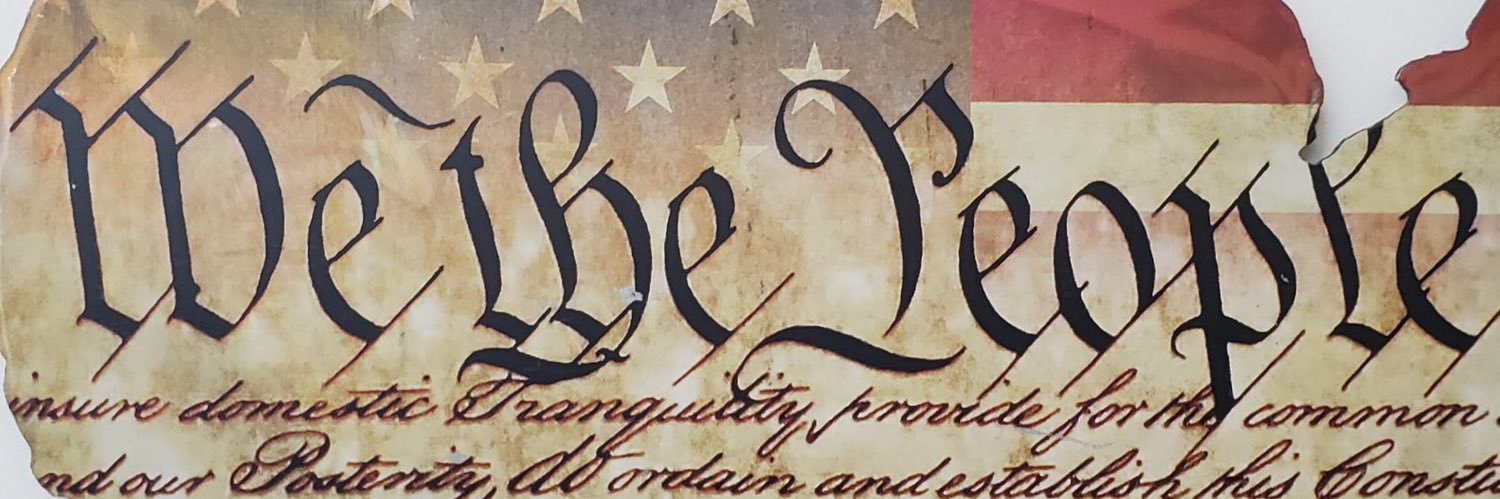 We the People
insure domestic Tranquility, provide for the common
nd our Posterity, do ordain and establish this Constitu